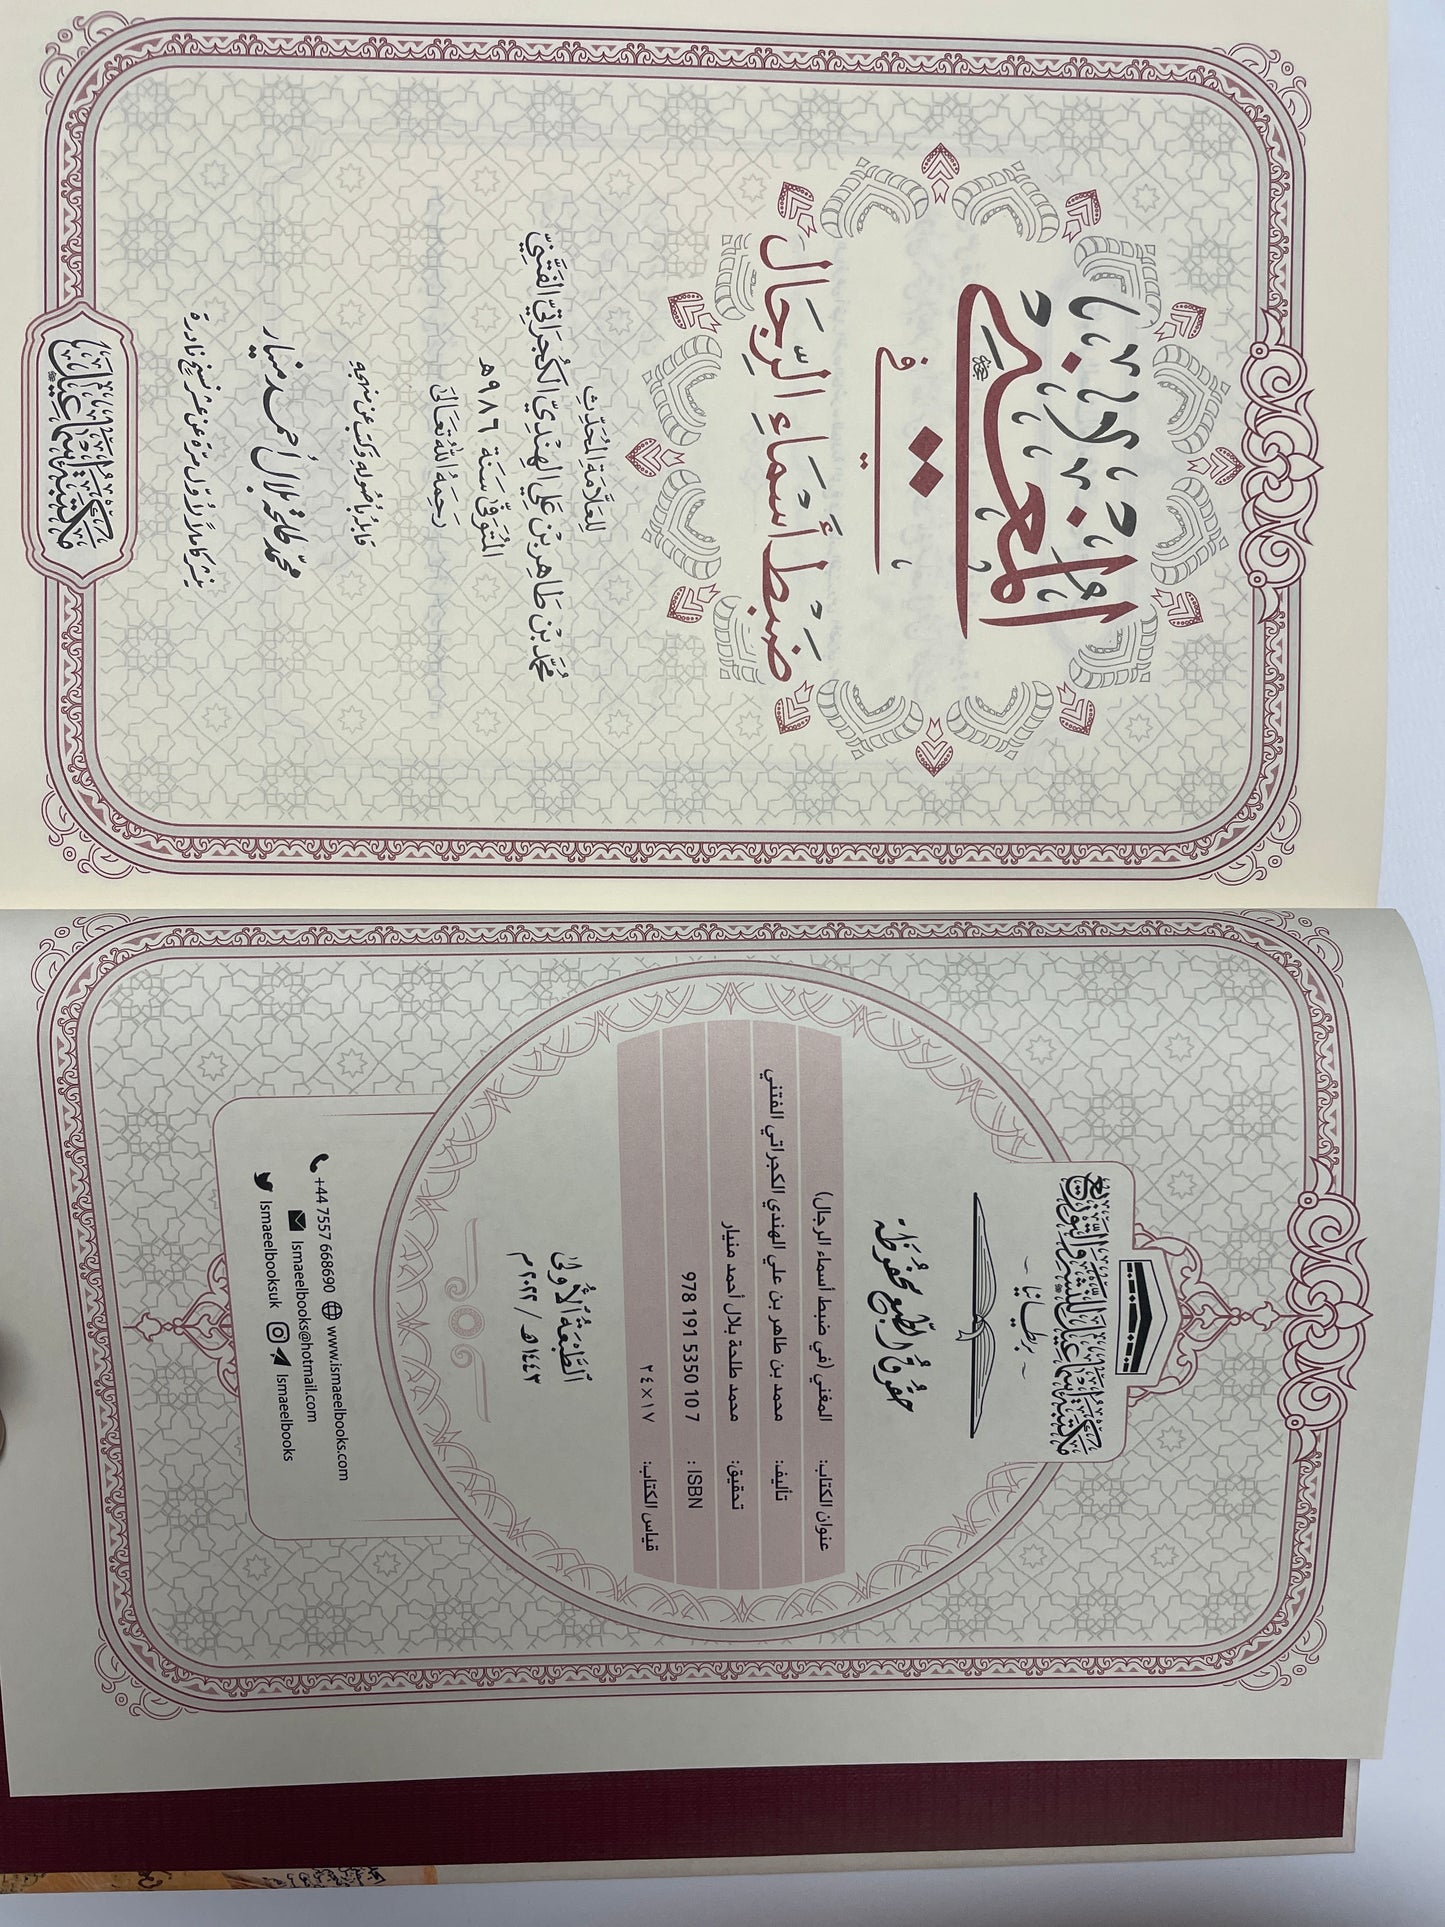 المغني
في
ضبط أسماء الرجال
للعلامة المحدث
محمد بن طاهر بن علي الهندي الكجراتي الفتني
المتوفى سنة ٩٨٦ هـ
رحمه الله تعالى
قابله بأصوله وكتب عن منهجه
محمد طلحة بلال أحمد منيار
ينشر كاملا لأول مرة عن عشر نسخ نادرة
مكتبة إسماعيل
مكتبة إسماعيل للنشر والتوزيع
- بريطانيا -
حقوق الطبع محفوظة
عنوان الكتاب: المغني (في ضبط أسماء الرجال)
تأليف: محمد بن طاهر بن علي الهندي الكجراتي الفتني
تحقيق: محمد طلحة بلال أحمد منيار
ISBN : 978 191 5350 10 7
قياس الكتاب: ١٧×٢٤
الطبعة الأولى
١٤٤٣هـ / ٢٠٢٢م
+44 7557 668690 www.ismaeelbooks.com
Ismaeelbooks@hotmail.com
Ismaeelbooksuk Ismaeelbooks